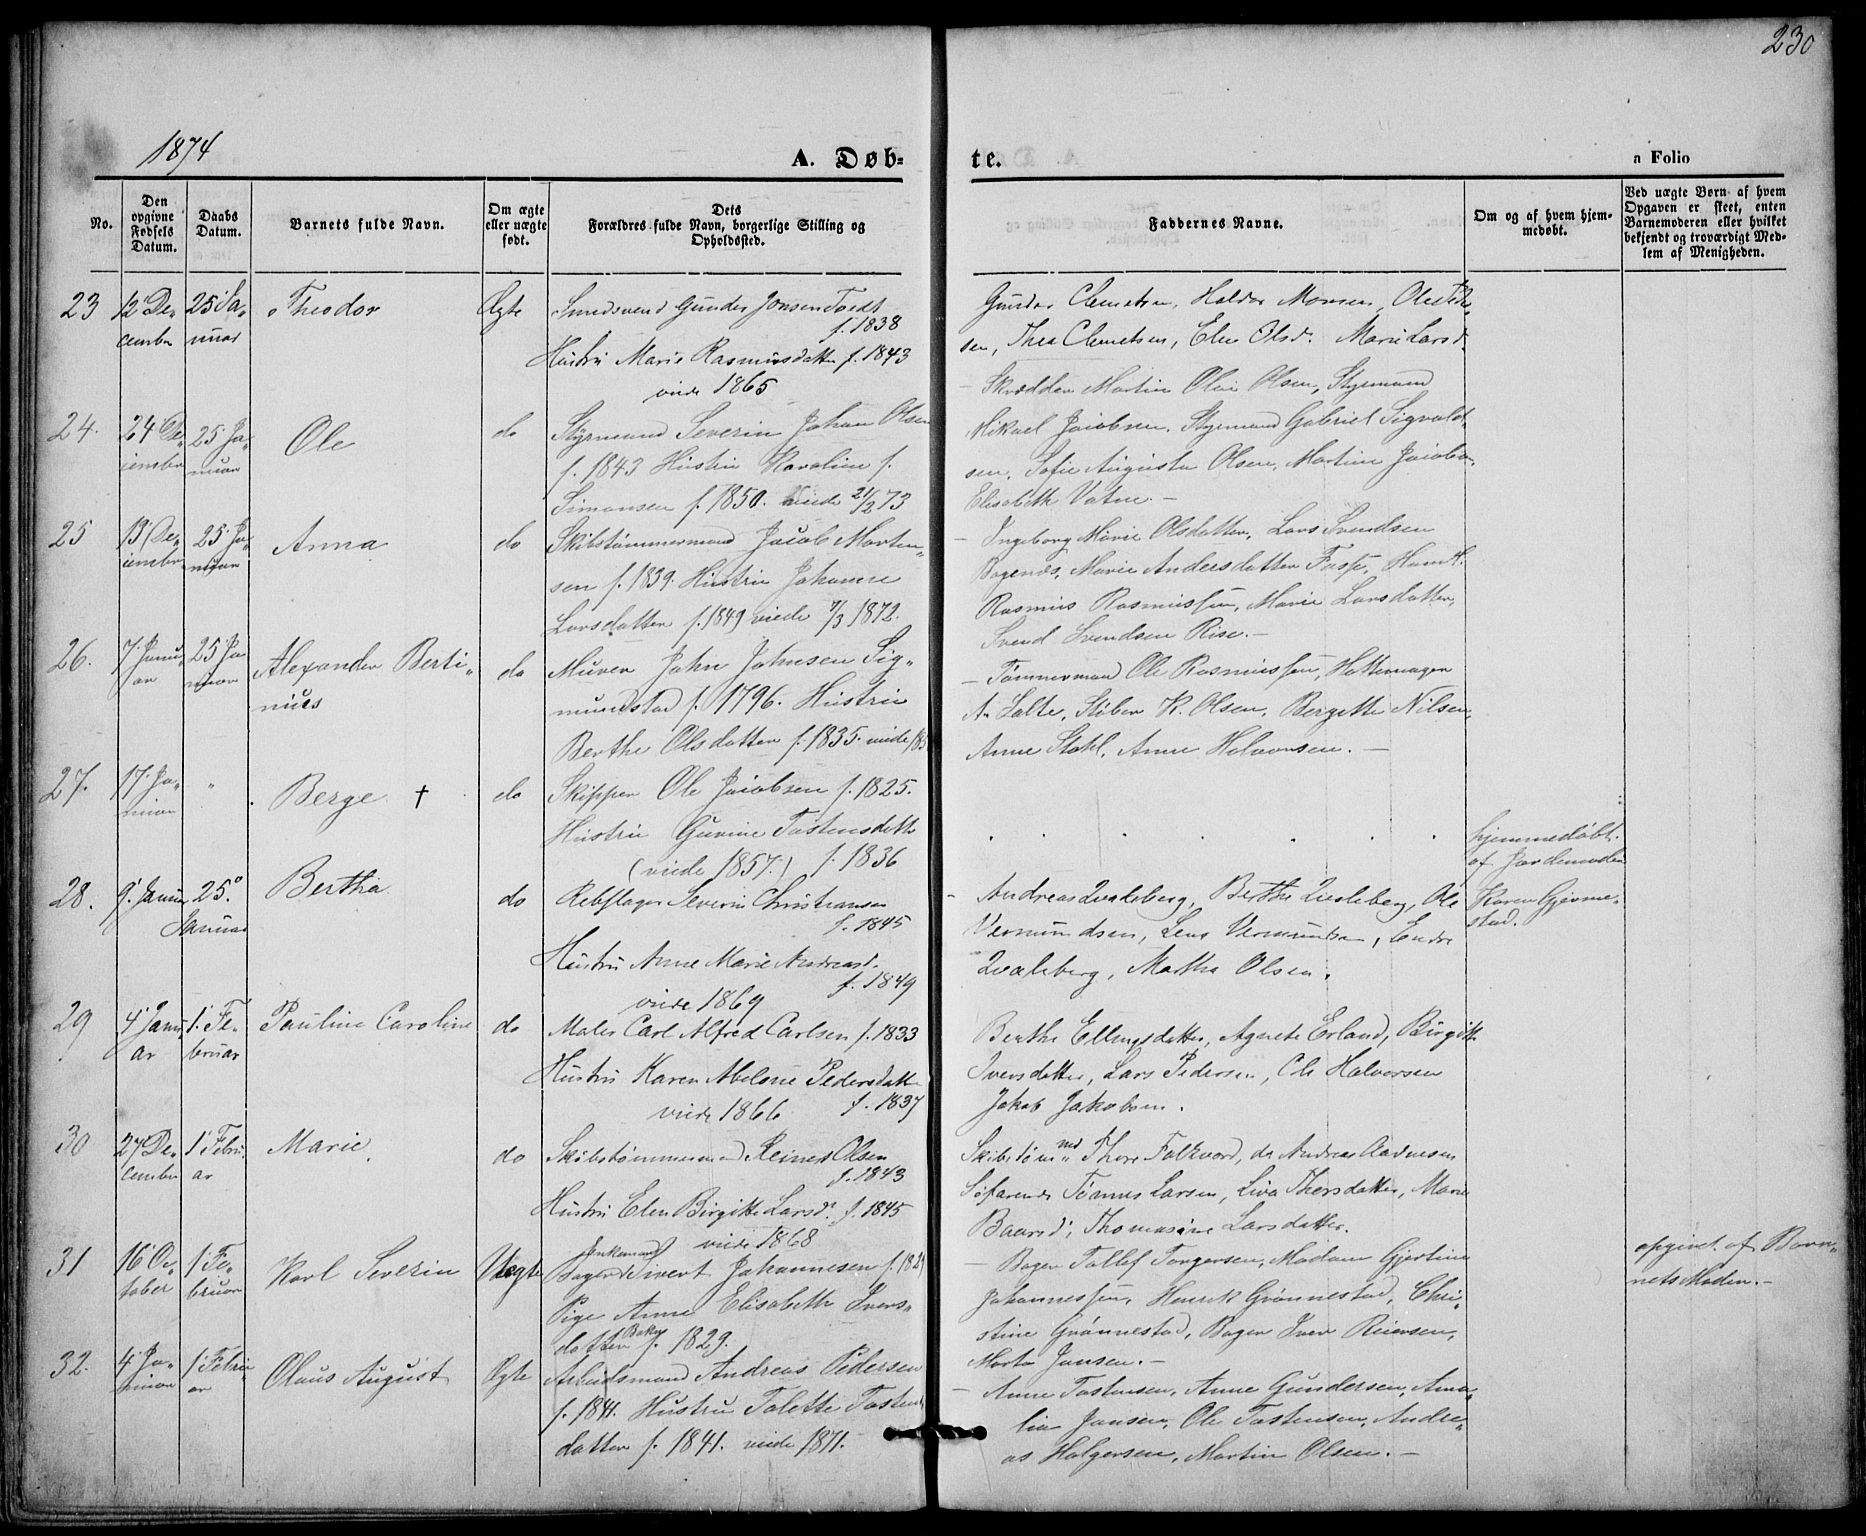 230
1874
A. Døb-
te.
a Folio
No.
Den opgivne Fødsels Datum.
Daabs Datum.
Barnets fulde Navn.
Om ægte eller uægte født.
Dets
Forældres fulde Navn, borgerlige Stilling og
Opholdssted.
Faddernes Navne.
Om og af hvem hjem-
medøbt.
Ved uægte Børn af hvem
Opgaven er skeet, enten
Barnemoderen eller hvilket
bekjendt og troværdigt Med-
lem af Menigheden.
23 12' De- 25' Ja- Theodor Ægte Smedsvend Gunder Jonsen Toedt
cember nuar f. 1838
Hustru Marie Rasmusdatter f. 1843
viede 1865
Gunder Clemetsen, Haldor Monsen, Ole
sen, Thea Clemetsen, Elen Olsd. Marie Larsd.
24. 24 De- 25' Ja- Ole do Styrmand Severin Johan Olsen
cember nuar f. 1843 Hustru Karoline f.
Simonsen f. 1850. viede 21/2 73
Skrædder Martin Olai Olsen, Styrmand
Mikael Jacobsen, Styrmand Gabriel Sigvald-
sen, Sofie Augusta Olsen, Martine Jacobs.
Elisabeth Vatne. -
25 13' De- 25' Ja- Anna do Skibstømmermand Jacob Morten-
cember nuar sen f. 1839. Hustru Johanne
Larsdatter f. 1849 viede 7/3 1872.
- Ingeborg Marie Olsdatter, Lars Svendsen
Marie Andersdatter
Rasmus Rasmussen, Marie Larsdatter,
Svend Svendsen Rise. -
26. 7' Janu- 25' Ja- Alexander Berti- do Murer John Johnsen Sig-
ar nuar nius mundstad f. 1796. Hustru
Berthe Olsdatter f. 1835. viede
- Tømmermand Ole Rasmussen, Hattemager
A. Salte, K. Olsen, Bergitte Nilsen,
Anne Stahl, Anne Halvorsen. -
27. 17' Ja- " Berge † do Skipper Ole Jacobsen f. 1825.
nuar Hustru Gurine Tostensdatter
(viede 1857.) f. 1836
hjemmedøbt
af Jordemoder
Karen Gjerme-
stad.
28. 9' Januar 25' Bertha do Rebslager Severin Christiansen
Januar f. 1845
Hustru Anne Marie Andreasd.
f. 1849
viede 1869
- Andreas Qvaleberg, Berthe Qvaleberg, Ole
Vermundsen, Lena Vermundsen, Endre
Qvaleberg, Martha Olsen.
29 4' Janu- 1' Fe- Pauline Caroline do Maler Carl Alfred Carlsen f. 1833
ar bruar Hustru Karen Abelone Pedersdatter
viede 1866 f. 1837
Berthe Ellingsdatter, Agnete Erland, Birgitte
Iversdatter, Lars Pedersen, Ole Halvorsen
Jakob Jakobsen.
30 27 De- 1' Febru- Marie do Skibstømmermand Reiner Olsen
cember ar f. 1843
Hustru Elen Birgitte Larsd. f. 1845
viede 1868
Skibstømmd Thore Folkvord, do Andreas Aadnesen
Søfarende Tønnes Larsen, Liva Thorsdatter, Marie
Baarsd, Thomasine Larsdatter.
31 16' Oc- 1' Fe- Karl Severin Uægte Enkemand
tober bruar Bager Sivert Johannesen f. 182
Pige Anne Elisabeth Ivers-
datter f. 1829.
- Bager Tollef Torgersen, Madam Gjertine
Johannessen, Henrik Grønnestad, Chri-
stine Grønnestad, Bager Iver Reiersen,
Marta Jansen. -
opgivet af Barn-
nets Moder. -
32. 4' Ja- 1' Febru- Olaus August Ægte Arbeidsmand Andreas Pedersen
nuar ar f. 1841. Hustru Tolette Tostens
datter f. 1841. viede 1871.
- Anne Tostensen, Anne Gundersen, Ama-
lia Jansen, Ole Tostensen, Andre-
as Holgersen, Martin Olsen. -